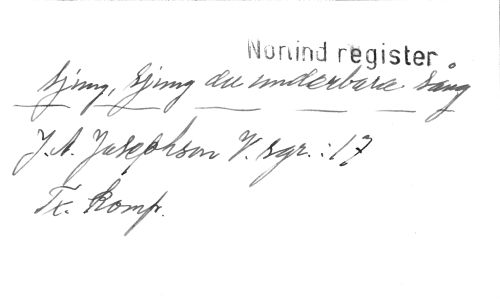 Norlind register
Sjung, sjung du underbara sång
J. A. Josephson V. sgr. : 17
Tx. Komp.